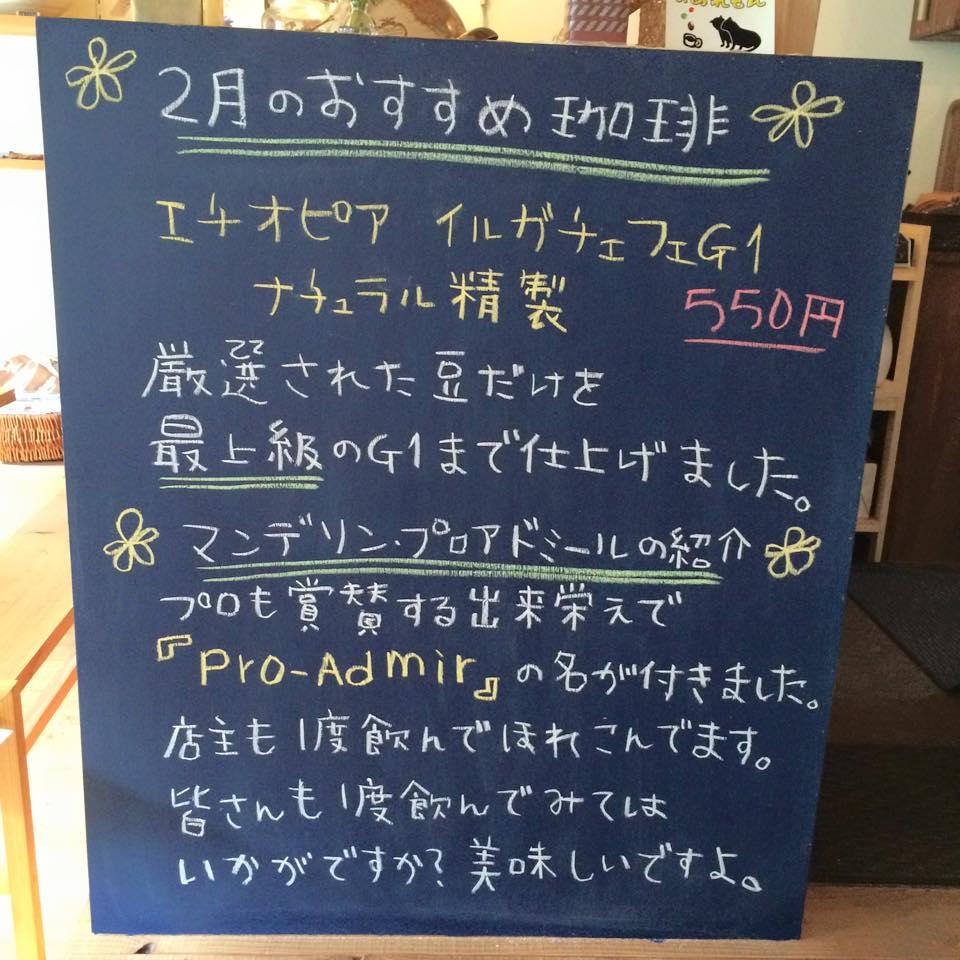 2月のおすすめ珈琲
エチオピア イルガチェフェG1
ナチュラル精製 550円
厳選された豆だけを
最上級のG1まで仕上げました。
マンデリン・プロアドミールの紹介
プロも賞賛する出来栄えで
『Pro-Admir』の名が付きました。
店主も1度飲んでほれこんでます。
皆さんも1度飲んでみては
いかがですか?美味しいですよ。